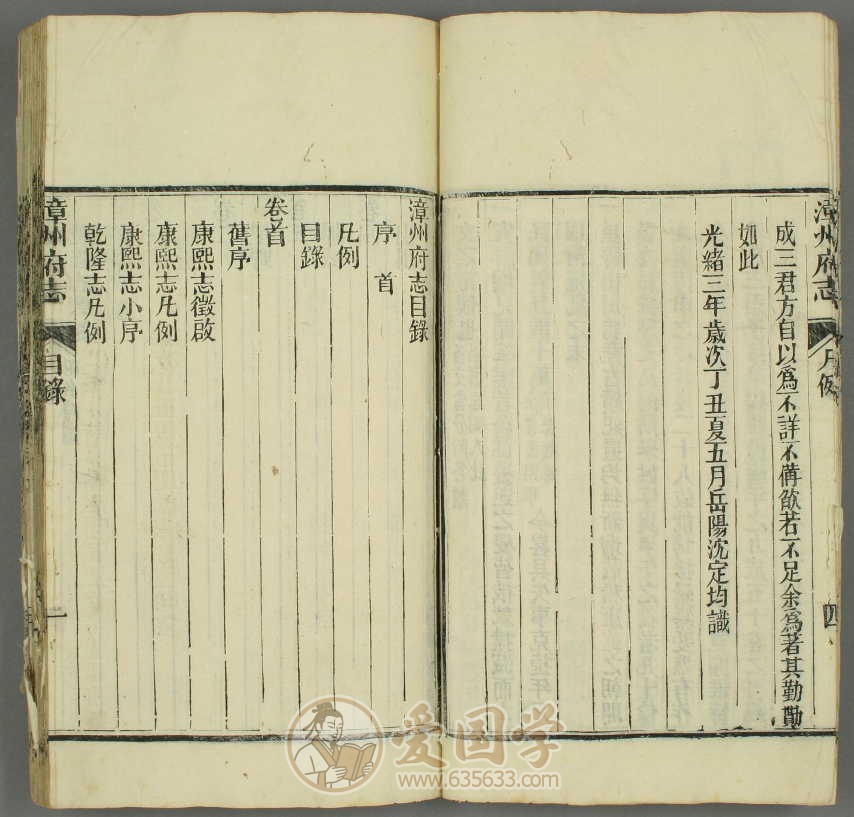 漳州府志
凡例
四
成三君方自以爲不詳不備欿若不足余爲著其勤勩
如此
光緒三年歲次丁丑夏五月岳陽沈定均識
漳州府志目錄
序首
凡例
目錄
卷首
舊序
康熙志徵啟
康熙志凡例
康熙志小序
乾隆志凡例
漳州府志
目錄
一
爱国学
www.635633.com